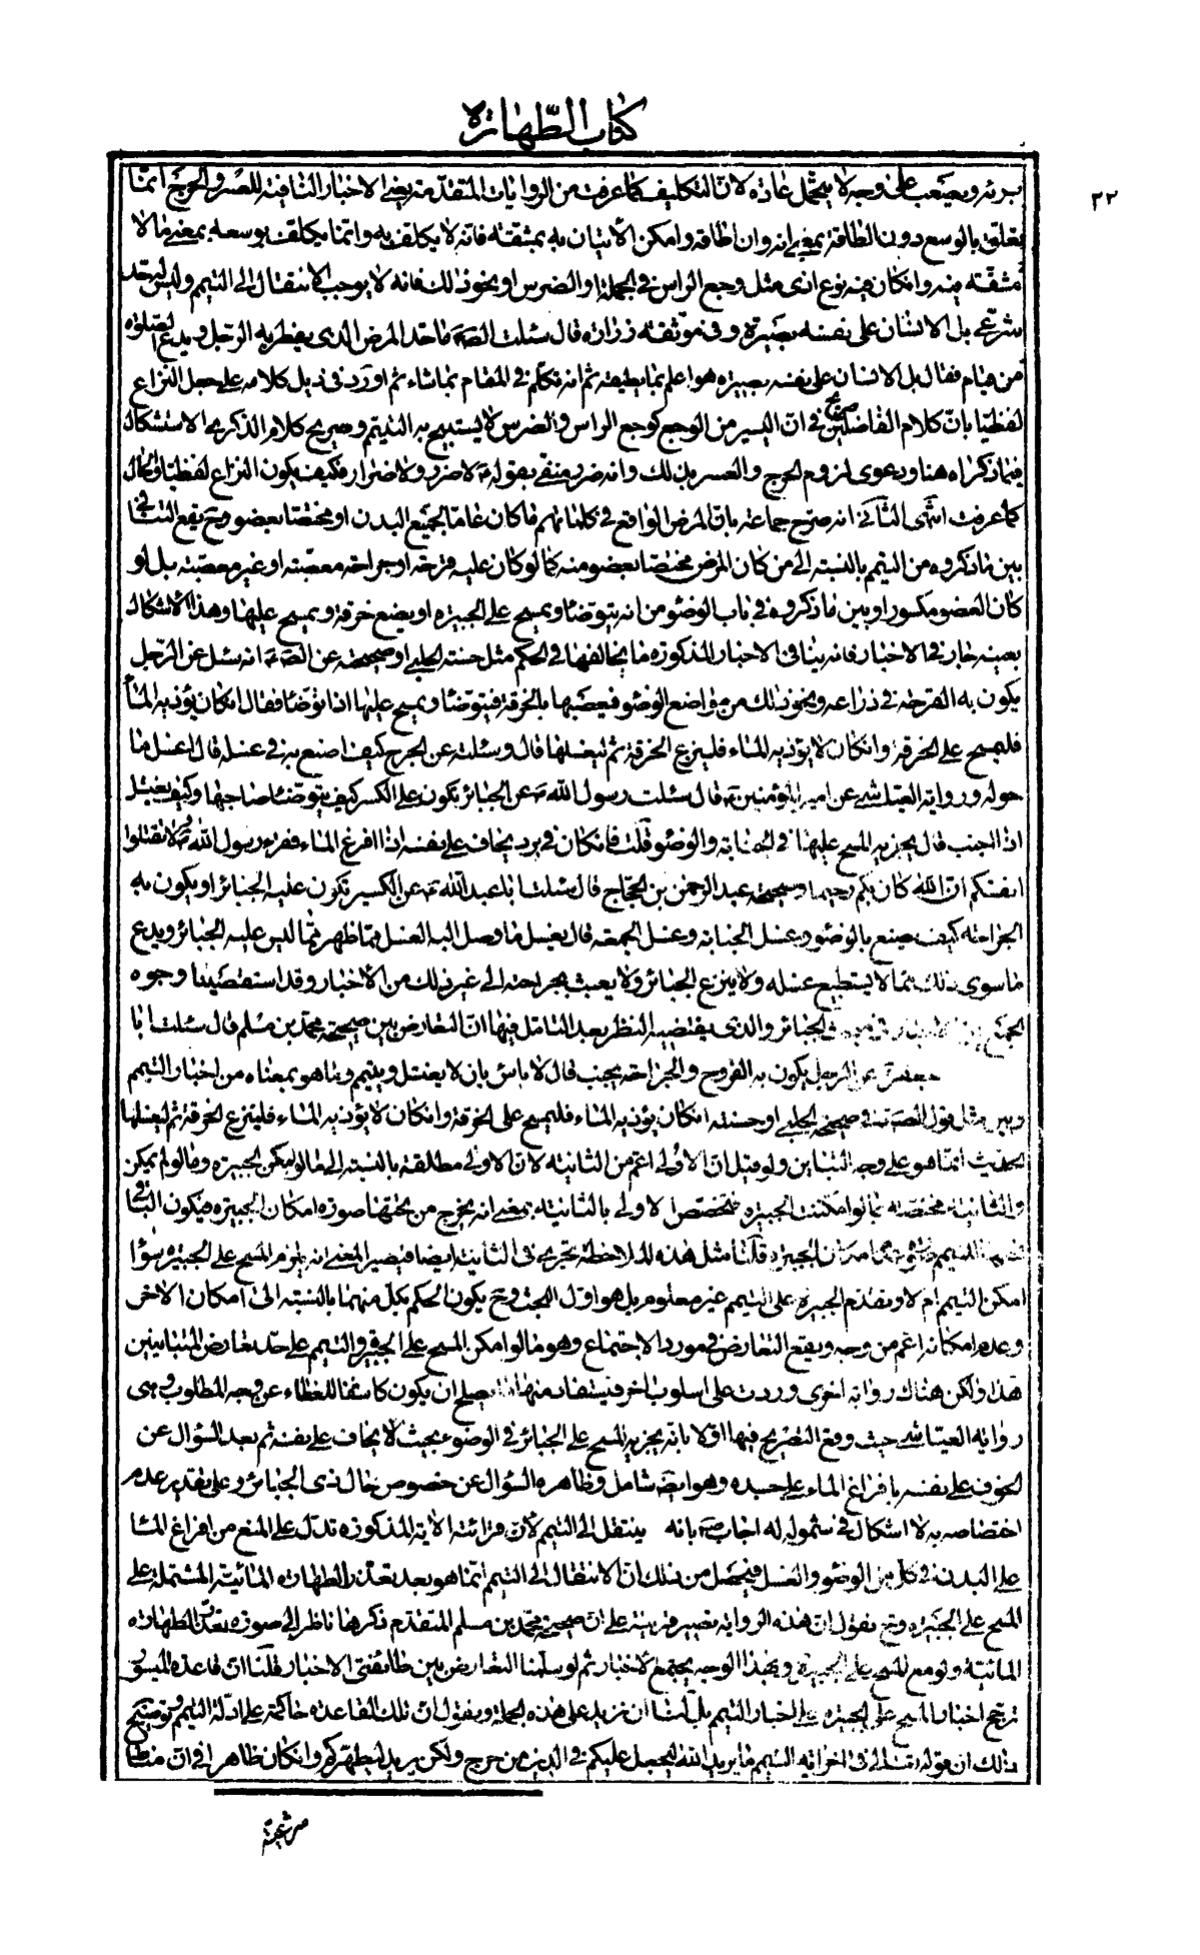 كتاب الطهارة
٢٢
برئه ويصعب على وجه لا يتحمل عادة لان التكليف كما عرفت من الروايات المتقدمة يعني الاخبار النافية للعسر والحرج انما
يتعلق بالوسع دون الطاقة بمعنى انه وان اطاقه وامكن الاتيان به بمشقة فانه لا يكلف به وانما يكلف بوسعه بمعنى ما لا
مشقة فيه وانكان فيه نوع اذى مثل وجع الراس في الجملة او الضرس او نحو ذلك فانه لا يوجب الانتقال الى التيمم وليس لتقديره
شرعي بل الانسان على نفسه بصيرة وفي موثقة زرارة قال سئلت الصه ع ما حد المرض الذي يفطر به الرجل ويدع الصلوة
من قيام فقال بل الانسان على نفسه بصيرة هو اعلم بما يطيقه ثم انه تكلم في المقام بما شاء ثم اورد في ذيل كلامه على جعل النزاع
لفظيا بان كلام الفاضلين صريح في ان اليسير من الوجع كوجع الراس والضرس لا يستبيح به التيمم وصريح كلام الذكرى الاستشكال
فيما ذكراه هنا ودعوى لزوم الحرج والعسر بذلك وانه ضرر منفي بقوله ع لا ضرر ولا ضرار فكيف يكون النزاع لفظيا والحال
كما عرفت انتهى الثاني انه صرح جماعة بان المرض الواقع في كلماتهم ما كان عاما لجميع البدن او مختصا بعضو وح يقع التنافي
بين ما ذكروه من التيمم بالنسبة الى من كان المرض مختصا بعضو منه كما لو كان عليه قرحة او جراحة معصبة او غير معصبة بل او
كان العضو مكسورا وبين ما ذكروه في باب الوضوء من انه يتوضأ ويمسح على الجبيرة او يضع خرقة ويمسح عليها وهذا الاشكال
بعينه جار في الاخبار فانه ينافي الاخبار المذكورة ما يخالفها في الحكم مثل حسنة الحلبي او صحيحته عن الصه ع انه سئل عن الرجل
يكون به القرحة في ذراعه ونحو ذلك من مواضع الوضوء فيعصبها بالخرقة فيتوضأ ويمسح عليها اذا توضأ فقال انكان يؤذيه الماء
فليمسح على الخرقة وانكان لا يؤذيه الماء فلينزع الخرقة ثم ليغسلها قال وسئلته عن الجرح كيف اصنع به في غسله قال اغسل ما
حوله ورواية العياشي عن امير المؤمنين ع قال سئلت رسول الله ص عن الجبائر تكون على الكسر كيف يتوضأ صاحبها وكيف يغسل
اذا اجنب قال يجزيه المسح عليها في الجنابة والوضوء قلت فانكان في برد يخاف على نفسه اذا افرغ الماء فقرء رسول الله ص ولا تقتلوا
انفسكم ان الله كان بكم رحيما وصحيحة عبد الرحمن بن الحجاج قال سئلت ابا عبد الله ع عن الكسير تكون عليه الجبائر او يكون به
الجراحة كيف يصنع بالوضوء وغسل الجنابة وغسل الجمعة قال يغسل ما وصل اليه الغسل مما ظهر مما ليس عليه الجبائر ويدع
ما سوى ذلك مما لا يستطيع غسله ولا ينزع الجبائر ولا يعبث بجراحته الى غير ذلك من الاخبار وقد استقصينا وجوه
الجمع الجبائر والذي يقتضيه النظر بعد التامل فيها ان التعارض بين صحيحة محمد بن مسلم قال سئلت ابا
جعفر ع عن الرجل يكون به القروح والجراحة يجنب قال لا باس بان لا يغتسل ويتيمم وما هو بمعناه من اخبار التيمم
وبين مثل قول الصه ع في صحيح الحلبي او حسنته انكان يؤذيه الماء فليمسح على الخرقة وانكان لا يؤذيه الماء فلينزع الخرقة ثم ليغسلها
الحديث انما هو على وجه التباين ولو قيل ان الاولى اعم من الثانية لان الاولى مطلقة بالنسبة الى ما لو امكن الجبيرة وما لو لم يمكن
والثانية مختصة بما لو امكنت الجبيرة فتخصص الاولى بالثانية بمعنى انه يخرج من تحتها صورة امكان الجبيرة فيكون الباقي
التيمم الجبيرة قلنا مثل هذه الملاحظة تجري في الثانية ايضا فيصير المعنى انه يلزم المسح على الجبيرة سواء
امكن التيمم ام لا وتقدم الجبيرة على التيمم غير معلوم بل هو اول البحث وح يكون الحكم بكل منهما بالنسبة الى امكان الاخر
وعدم امكانه اعم من وجه ويقع التعارض في مورد الاجتماع وهو ما لو امكن المسح على الجبيرة والتيمم على حد تعارض المتباينين
هذا ولكن هناك رواية اخرى وردت على اسلوب اخر فيستفاد منها ما يصلح ان يكون كاشفا للغطاء عن وجه المطلوب وهي
رواية العياشي حيث وقع التصريح فيها اولا بانه يجزيه المسح على الجبائر في الوضوء بحيث لا يخاف على نفسه ثم بعد السؤال عن
الخوف على نفسه بافراغ الماء على جسده وهو ايضا شامل وظاهره السؤال عن خصوص حال ذي الجبائر وعلى تقدير عدم
اختصاصه به لا اشكال في شموله له اجاب ص بانه ينتقل الى التيمم لان قرائته الاية المذكورة تدل على المنع من افراغ الماء
على البدن في كل من الوضوء والغسل فيحصل من ذلك ان الانتقال الى التيمم انما هو بعد تعذر الطهارة المائية المشتملة على
المسح على الجبيرة وح نقول ان هذه الرواية تصير قرينة على ان صحيحة محمد بن مسلم المتقدم ذكرها ناظر الى صورة تعذر الطهارة
المائية ولو مع المسح على الجبيرة وبهذا الوجه يجتمع الاخبار ثم لو سلمنا التعارض بين طائفتي الاخبار قلنا ان قاعدة الميسور
ترجح اخبار المسح على الجبيرة على اخبار التيمم بل لنا ان نزيد على هذه الجملة ونقول ان تلك القاعدة حاكمة على ادلة التيمم وتوضيح
ذلك ان قوله تعالى في اخر اية التيمم ما يريد الله ليجعل عليكم في الدين من حرج ولكن يريد ليطهركم وانكان ظاهرا في ان مناط